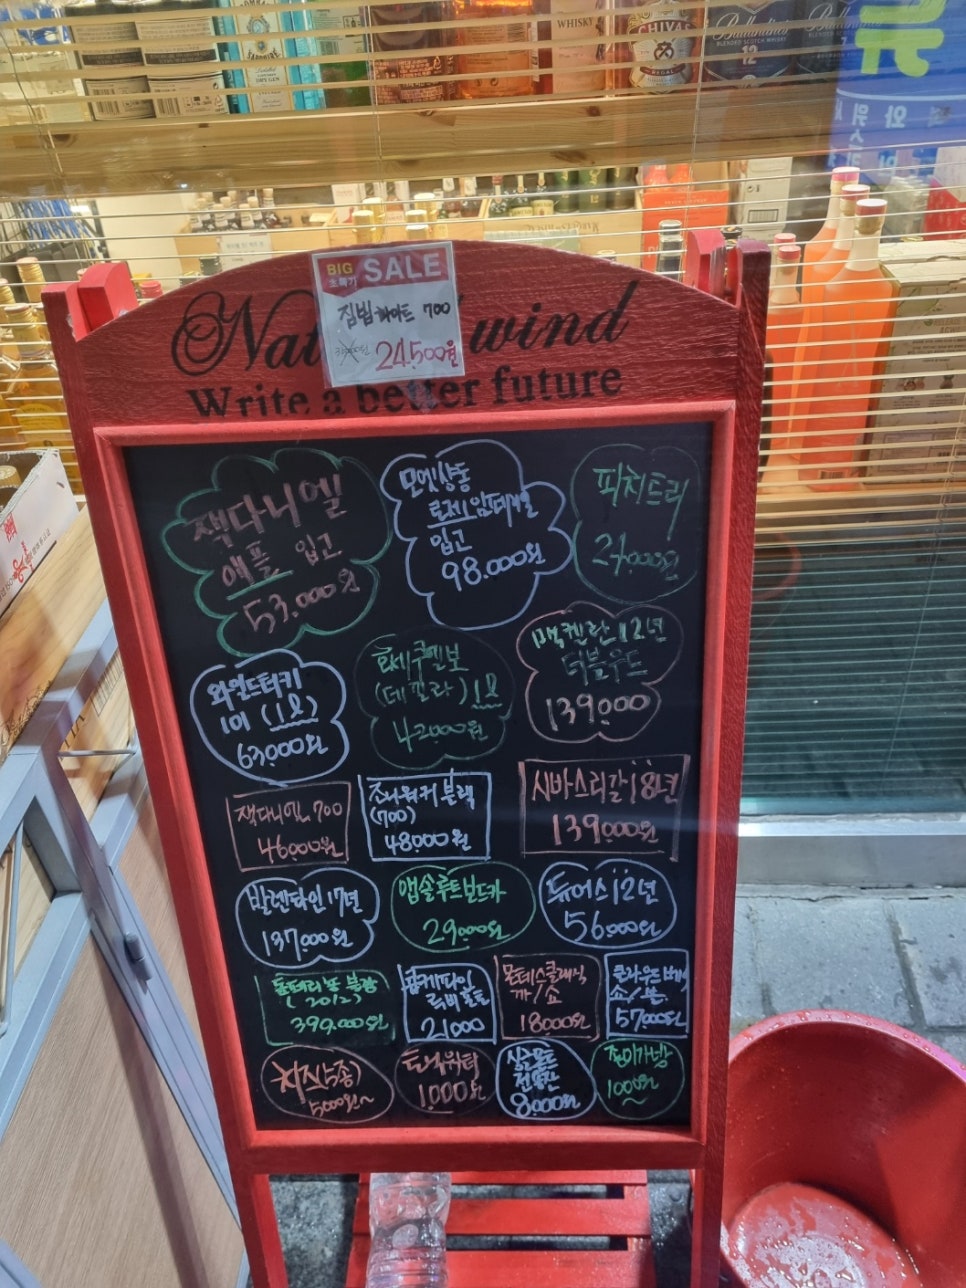 WHISKY
CHIVAS
REGAL
Ballantine's
12
BIG SALE
초특가
짐빔 화이트 700
24.500원
Nat wind
Write a better future
잭다니엘
애플 입고
53.000원
모엣샹동
로제임페리얼
입고
98.000원
피치트리
24000원
와일드터키
101 (1ℓ)
63000원
호세쿠엘보
(데킬라) 1ℓ
42000원
맥켈란 12년
더블우드
139000
잭다니엘 700
46000원
조니워커 블랙
(700)
48000원
시바스리갈 18년
139000원
발렌타인 17년
137.000원
앱솔루트보드카
29000원
듀어스 12년
56000원
돔페리뇽 블랑
(2012)
399.000원
폼케파인
루비포트
21000
몬테스클래식
까/쇼
18000원
57000원
5000원~
토닉워터
1.000원
싱글몰트
전용잔
8.000원
1000원